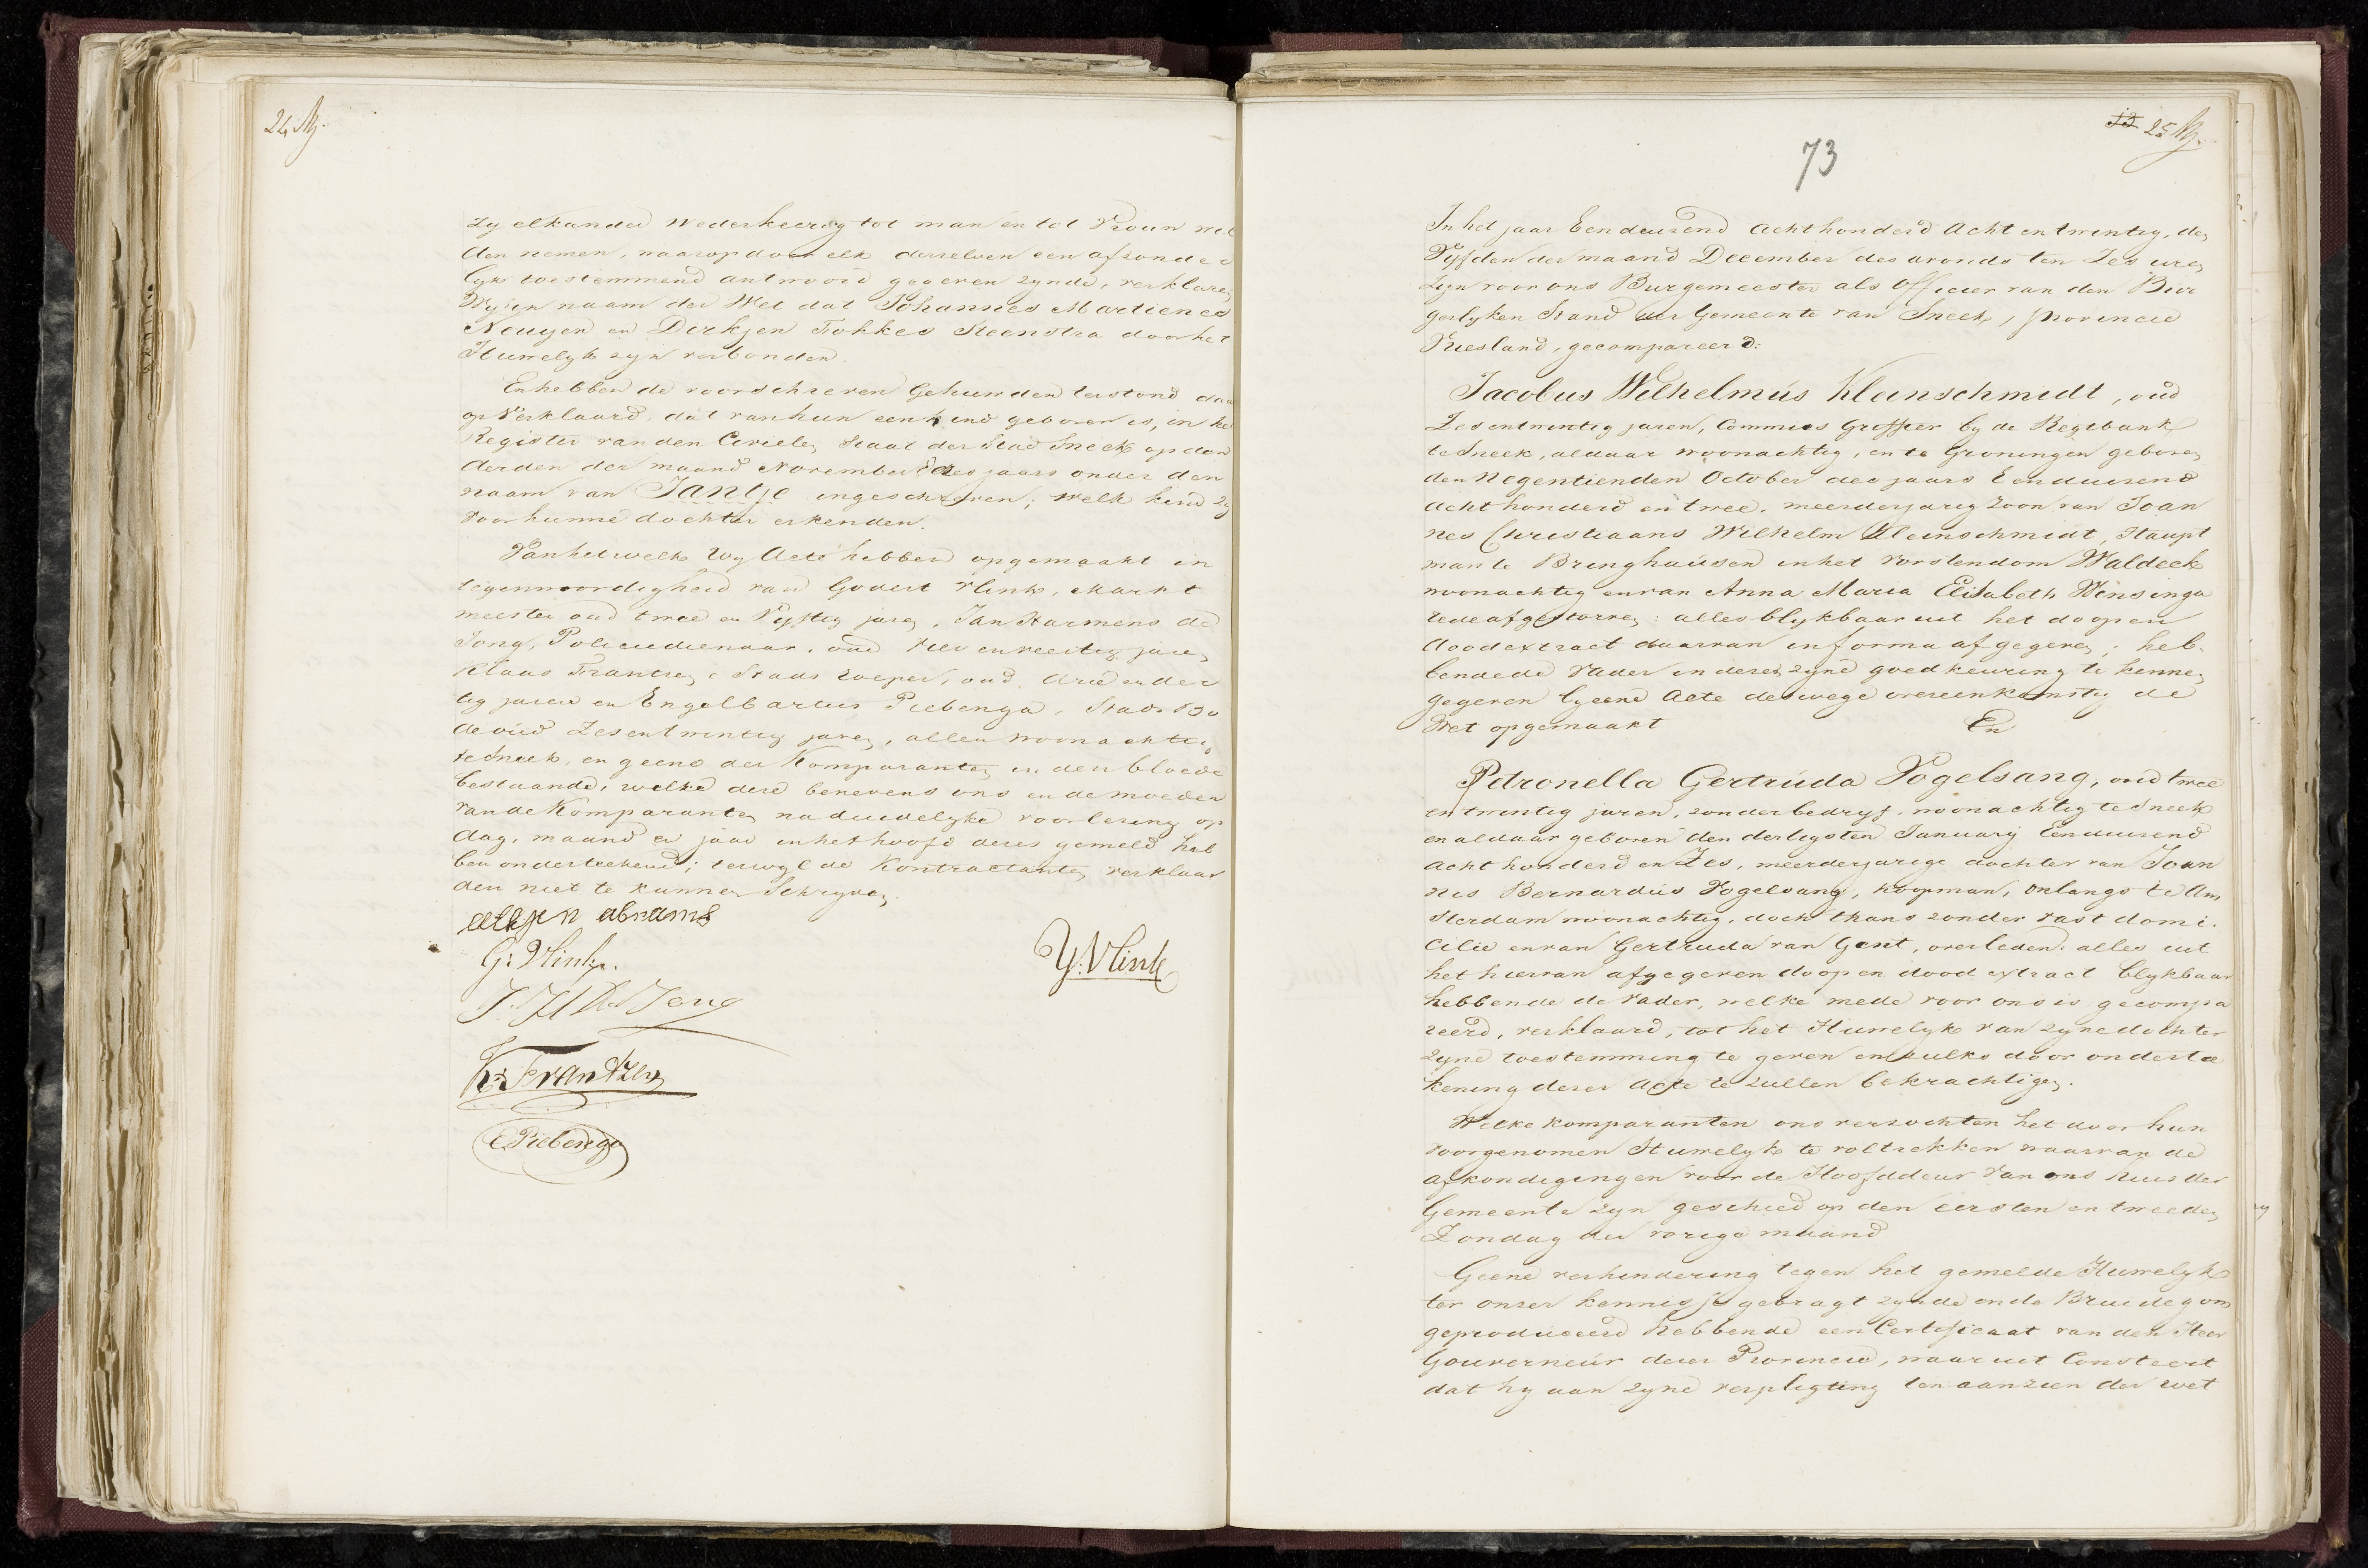 24
zy elkander wederkeerig tot man en tot Vrouw wil
den nemen, waarop door elk derzelven een afzonder
lyk toestemmend antwoord gegeven zynde, verklaren
Wy in naam der Wet dat Johannes Martienes
Nouyen en Dirkjen Fokkes Steenstra door het
Huwelyk zyn verbonden.
En hebben de voorschreven Gehuwden terstond daar
op Verklaard, dat van hun een kind geboren is, in het
Register van den Civielen Staat der Stad Sneek op den
derden der maand November dezes jaars onder den
naam van Jantje ingeschreven; welk kind zy
voor hunne dochter erkenden.
Van hetwelk Wy Acte hebben opgemaakt in
tegenwoordigheid van Govert Vlink, Markt
meester oud twee en Vyftig jaren, Jan Harmens de
Jong, Policiedienaar, oud vier en veertig jaren
Klaas Frantzen, Stads roeper, oud drie en der
tig jaren en Engelbartus Piebenga, Stads Bo
de oud Zesentwintig jaren, allen woonachtig
te Sneek, en geene der Komparanten in den bloede
bestaande, welke deze benevens ons en de moeder
van de Komparante na duidelyke voorlezing op
dag, maand en jaar in het hoofd dezes gemeld heb
ben onderteekend; terwyl de Kontractanten verklaar
den niet te kunnen Schryven.
abrams
G: Vlink.
Y: Vlink
J. H De Jong
K: Frantzen
E. Piebenga
25
73
In het jaar Eenduizend Achthonderd Acht en twintig, den
Vyfden der maand December des avonds ten Zes uren
Zyn voor ons Burgemeester als Officier van den Bur
gerlyken Stand der Gemeente van Sneek, Provincie
Vriesland, gecompareerd:
Jacobus Wilhelmús Kleinschmidt, oud
Zesentwintig jaren, Commies Griffier by de Regtbank
te Sneek, aldaar woonachtig, en te Groningen geboren
den Negentienden October des jaars Eenduizend
Acht honderd en twee, meerderjarig zoon van Joan
nes Christiaans Wilhelm Kleinschmidt, Haupt
man te Bringhaúsen in het Vorstendom Waldeck
woonachtig en van Anna Maria Elisabeth Winsinga
lede afgestorven: alles blykbaar uit het doop en
dood extract daarvan in forma afgegeven; heb-
bende de Vader in dezen zyne goedkeuring te kennen
gegeven by eene Acte deswege overeenkomstig de
Wet opgemaakt En
Petronella Gertrúda Vogelsang, oud twee
en twintig jaren, zonder bedryf, woonachtig te Sneek
en aldaar geboren den dertigsten January Eenduizend
Acht honderd en Zes, meerderjarige dochter van Joan
nes Bernardús Vogelsang, koopman, onlangs te Am
sterdam woonachtig, doch thans zonder vast domi-
cilie en van Gertruda van Gent, overleden: alles uit
het hiervan afgegeven doop en dood extract blykbaar
hebbende de Vader, welke mede voor ons is gecompa
reerd, verklaard, tot het Huwelyk van zyne dochter
zyne toestemming te geven en zulks door onderte
kening dezer Acte te zullen bekrachtigen.
Welke komparanten ons verzochten het door hun
voorgenomen Huwelyk te voltrekken waarvan de
afkondigingen voor de Hoofddeur van ons huis der
Gemeente zyn geschied op den eersten en tweeden
Zondag der vorige maand
Geene verhindering tegen het gemelde Huwelyk
ter onzer kennisse gebragt zynde en de Bruidegom
geproduceerd hebbende een Certificaat van den Heer
Gouverneúr dezer Provincie, waar uit Consteert
dat hy aan zyne verpligting ten aanzien der wet